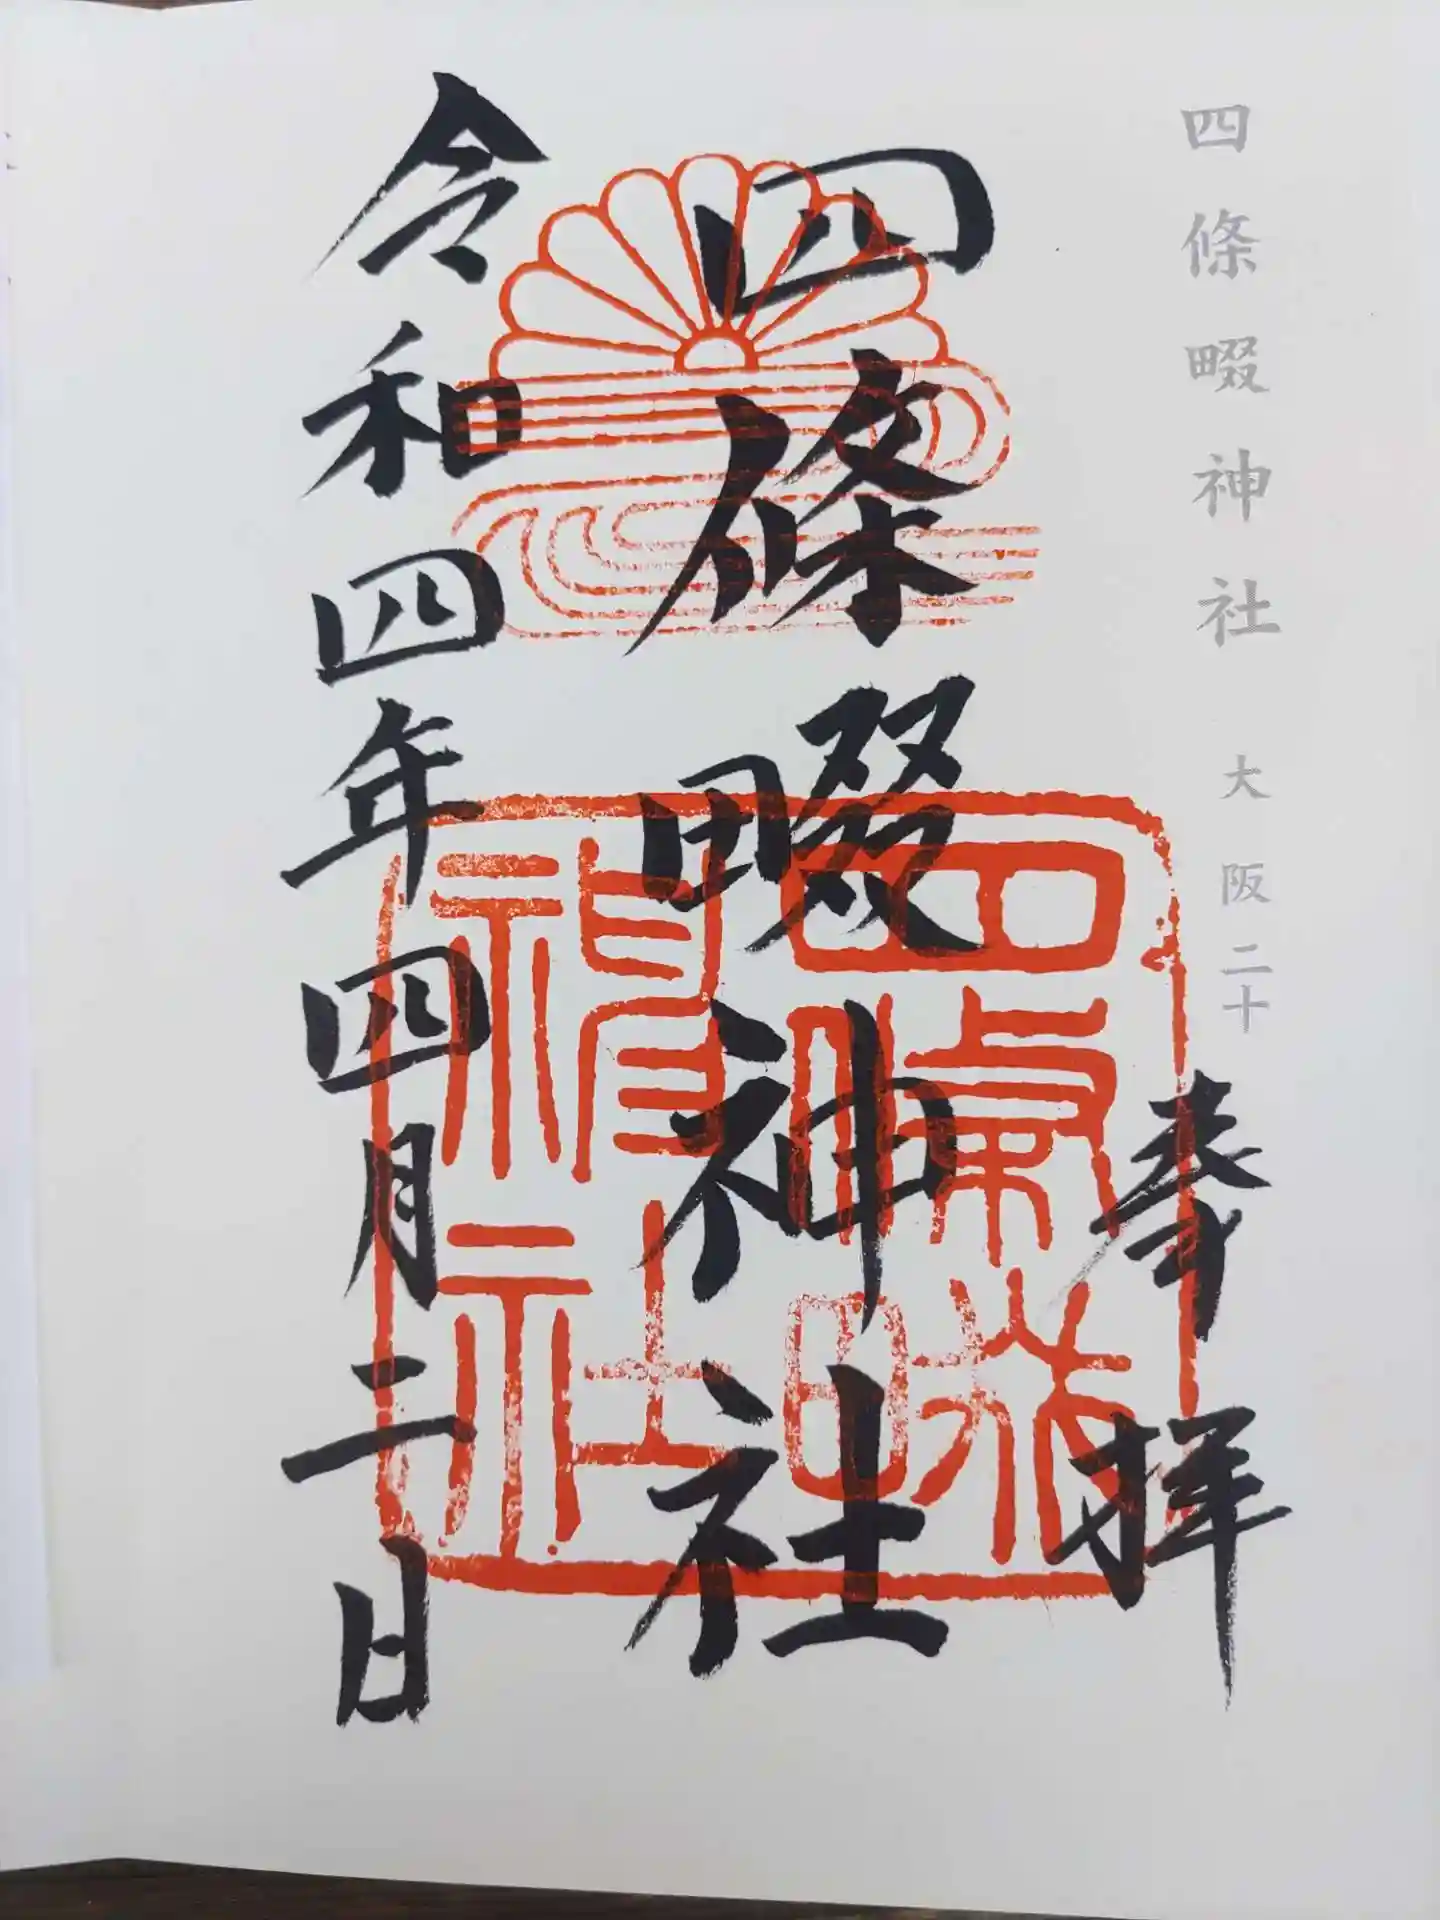 四條畷神社 大阪二十
奉拝
四條畷神社
四條畷
神社
令和四年四月二日